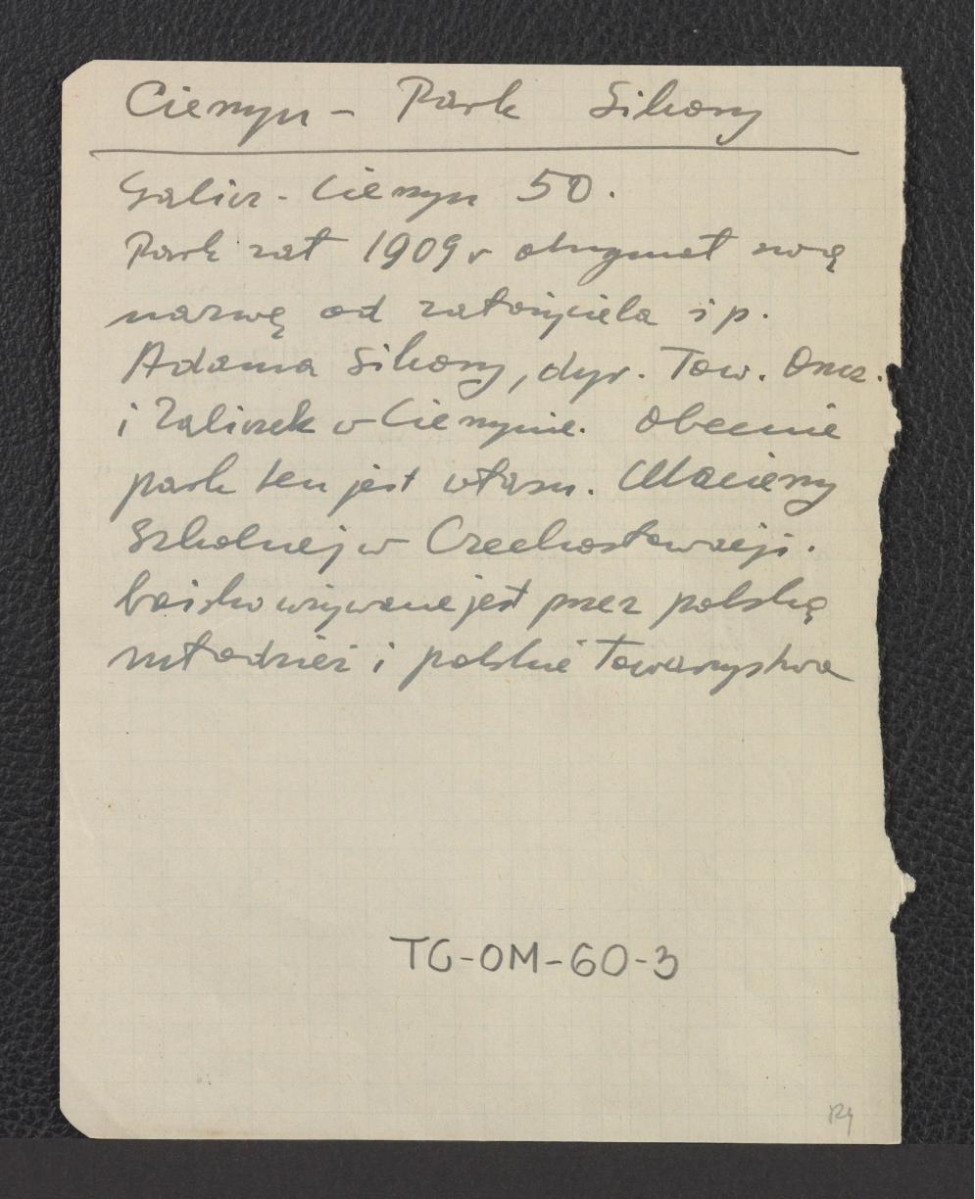 Cieszyn - Park Sikory
Galicz - Cieszyn 50.
Park zał 1909 r otrzymał swą
nazwę od założyciela ś p.
Adama Sikory, dyr. Tow. Oszcz.
i Zaliczek w Cieszynie. Obecnie
park ten jest własn. Macierzy
Szkolnej w Czechosłowacji.
boisko używane jest przez polską
młodzież i polskie Towarzystwa
TC-OM-60-3